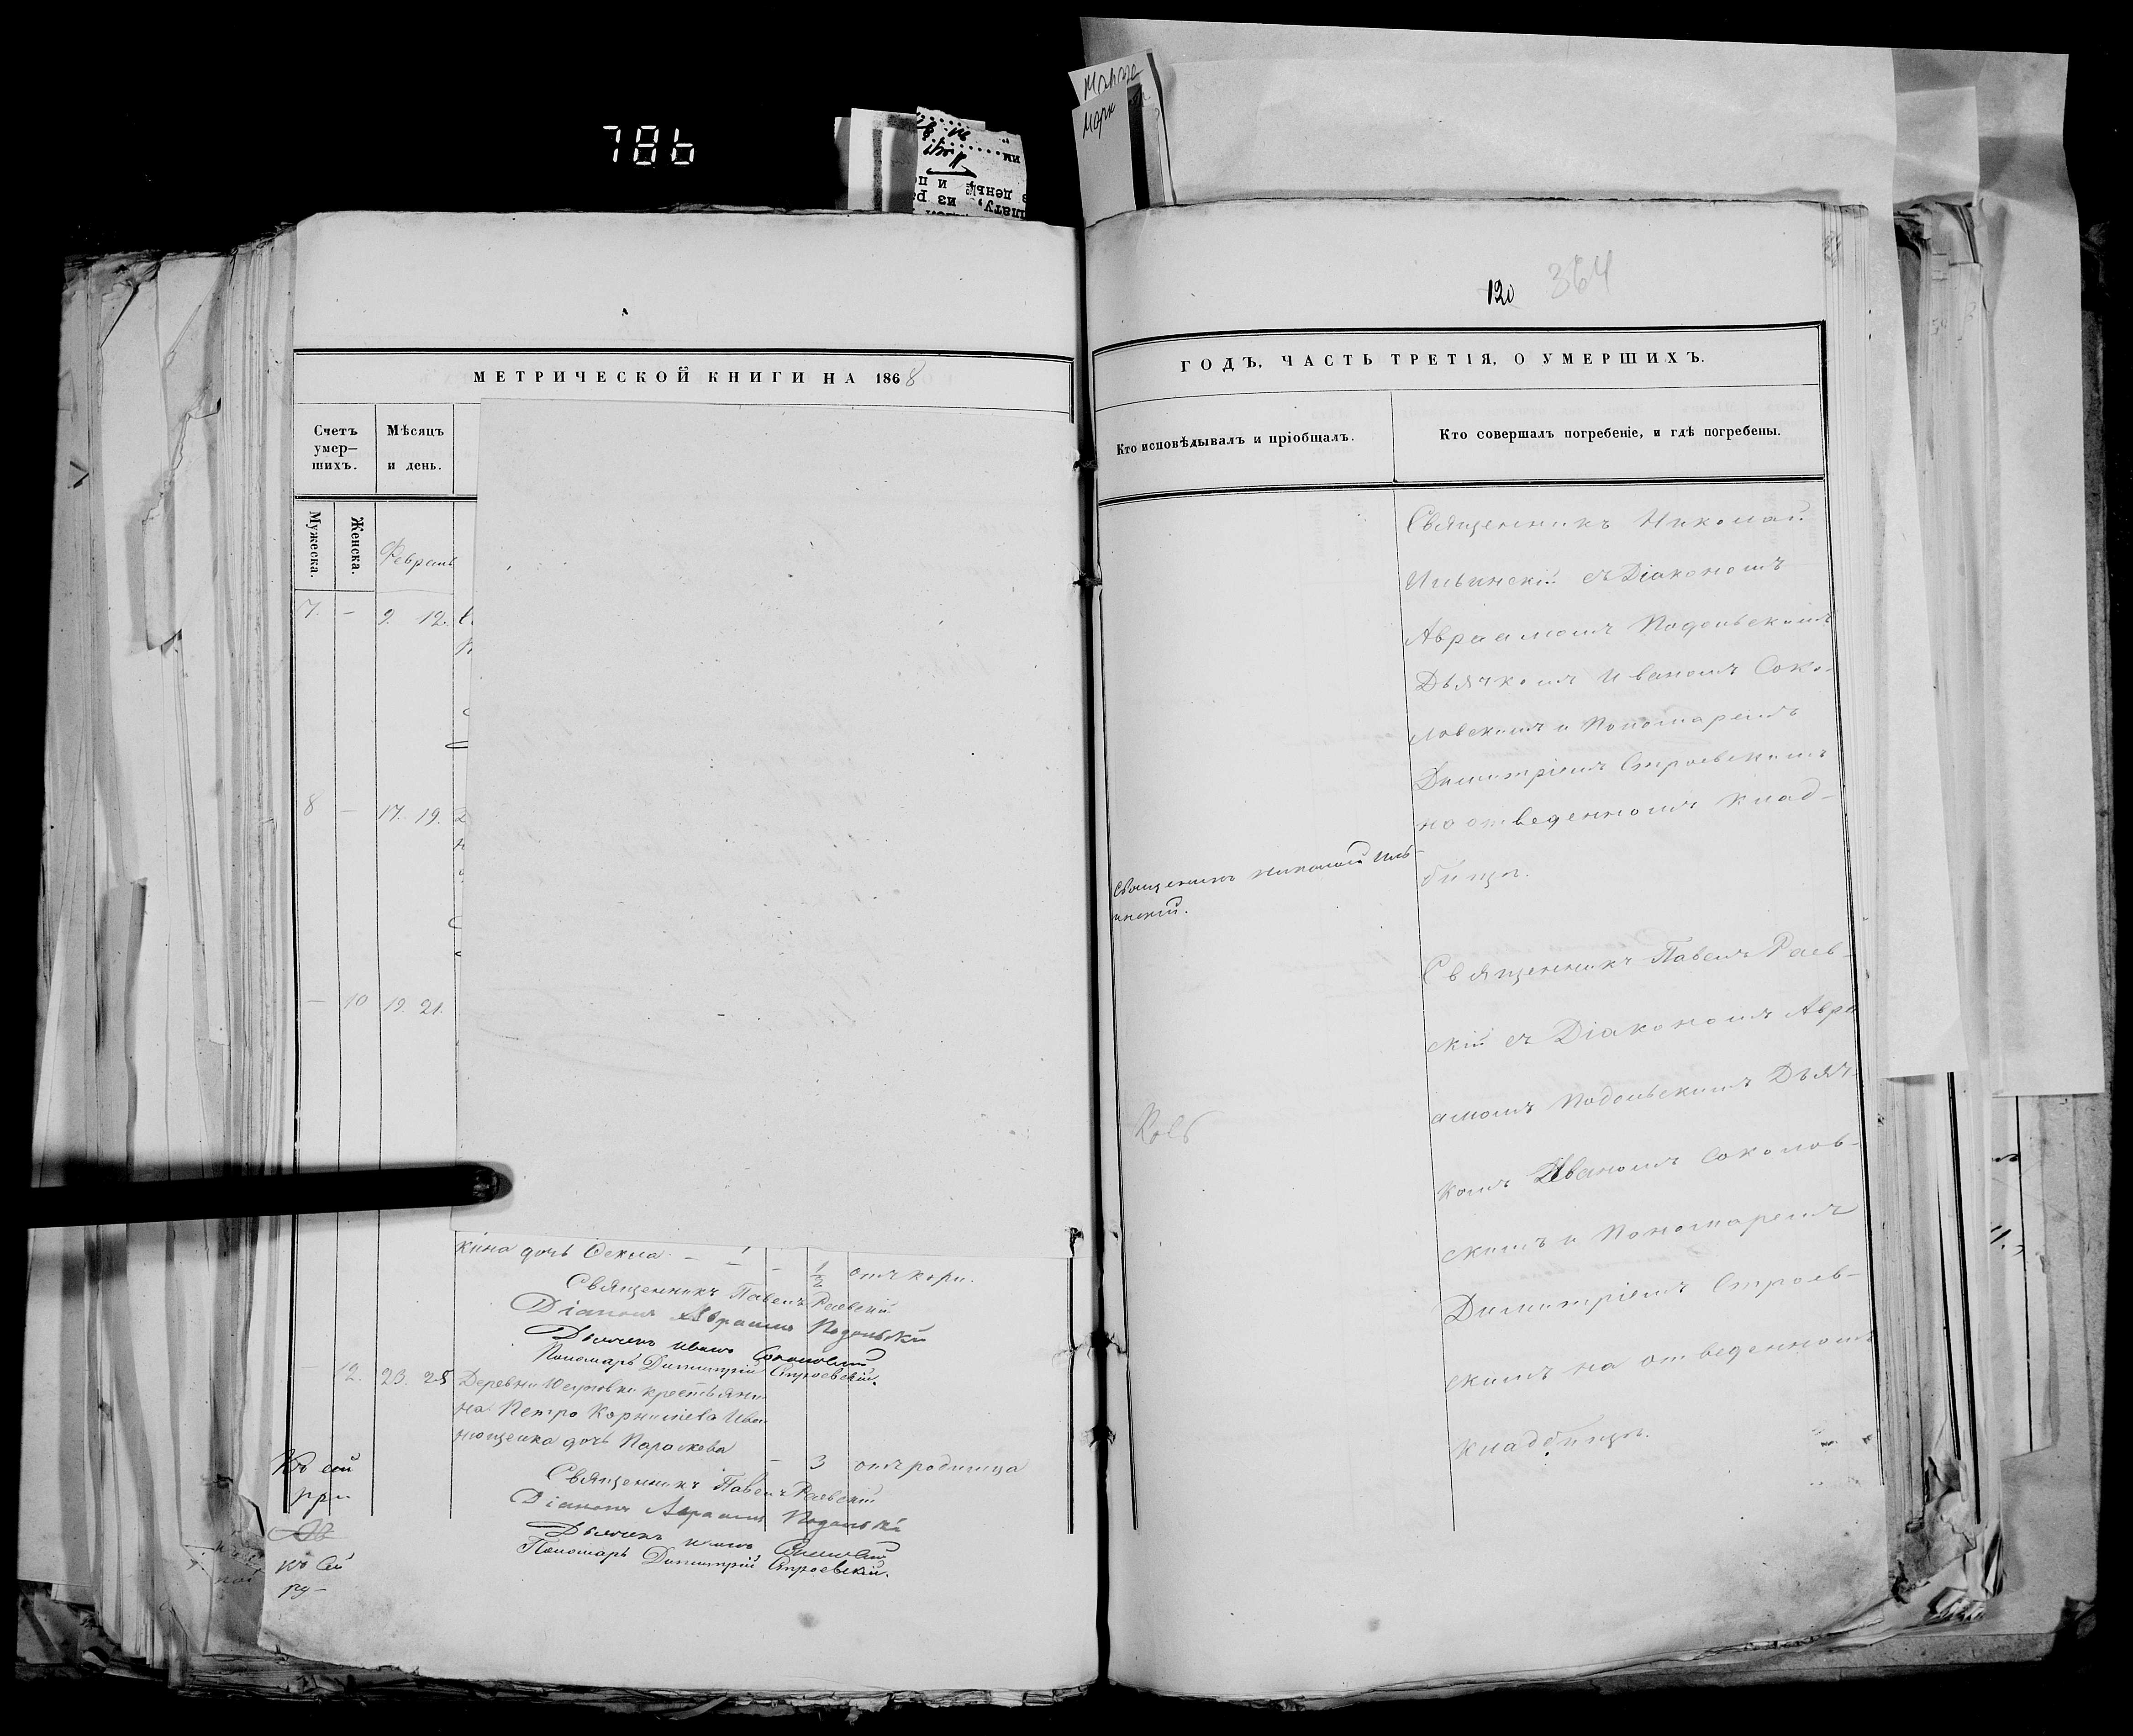 786
120 364
МЕТРИЧЕСКОЙ КНИГИ НА 1868
Счетъ умер-
шихъ.
Мѣсяцъ
и день.
Мужеска.
Женска.
Февраль
7. - 9. 12.
8 - 17. 19.
- 10 19. 21.
кина дочь Фекла - 1/2 отъ кори.
Священникъ Павелъ Раевскій
Діаконъ Авраамъ Подольскій
Дьячекъ Иванъ Соколовскій
Пономарь Димитрій Строевскій.
- 12. 23. 25 Деревни крестьяни-
на Петра Корнилiева Ива-
нющенка дочь Параскева - 3 отъ родимца
Священникъ Павелъ Раевскій
Діаконъ Авраамъ Подольскій
Дьячекъ Иванъ Соколовскій
Пономарь Димитрій Строевскій.
ГОДЪ, ЧАСТЬ ТРЕТІЯ, О УМЕРШИХЪ.
Кто исповѣдывалъ и пріобщалъ.
Кто совершалъ погребеніе, и гдѣ погребены.
Священникъ Николай Иль-
инскій.
Священникъ Николай
Ильинскій съ Діакономъ
Авраамомъ Подольскимъ
Дьячкомъ Иваномъ Соко-
ловскимъ и Пономаремъ
Димитріемъ Строевскимъ
на отведенномъ клад-
бищѣ.
Священникъ Павелъ Раев-
скій съ Діакономъ Авра
амомъ Подольскимъ Дьяч-
комъ Иваномъ Соколов-
скимъ и Пономаремъ
Димитріемъ Строев-
скимъ на отведенномъ
кладбищѣ.